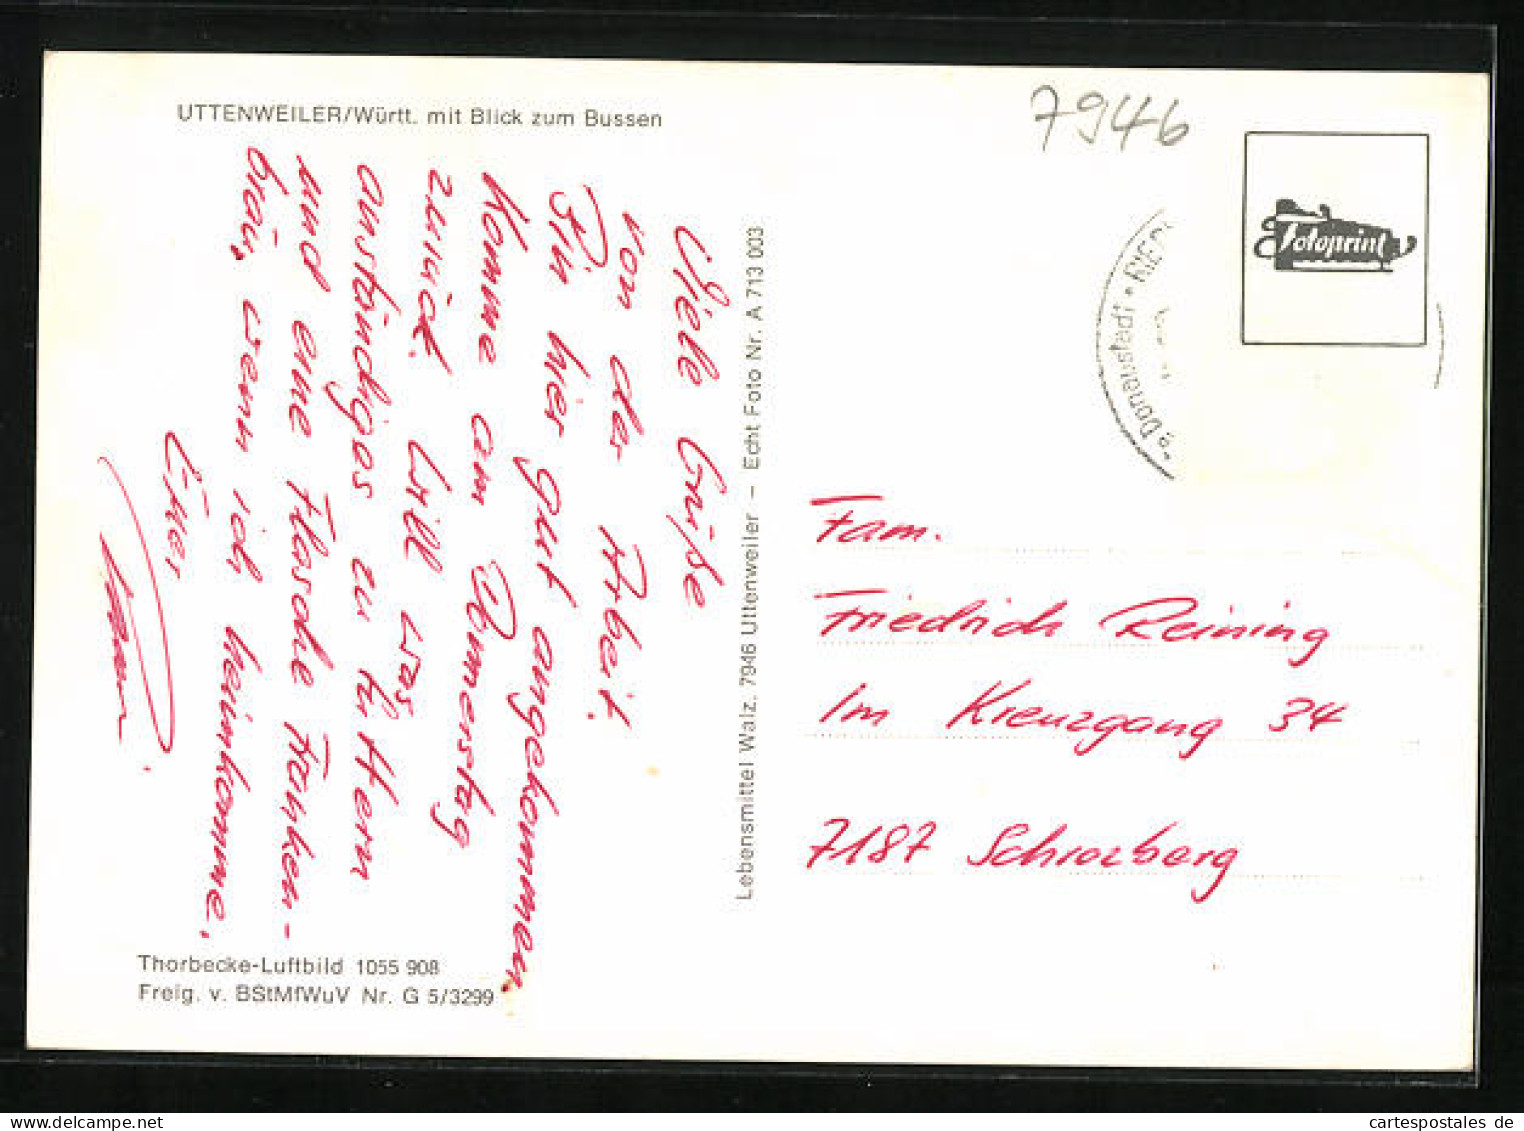 UTTENWEILER/Württ. mit Blick zum Bussen
7946
Fotoprint
e Donaustadt • RIED
Liebe Grüße
von der Arbeit.
Bin hier gut angekommen.
Komme am Donnerstag
zurück. Will was
anständiges zu hören
und eine Flasche Franken-
bräu, wenn ich heimkomme.
Euer
Lebensmittel Walz, 7946 Uttenweiler – Echt Foto Nr. A 713 003
Fam.
Friedrich Reining
Im Kreuzgang 34
7187 Schrozberg
Thorbecke-Luftbild 1055 908
Freig. v. BStMfWuV Nr. G 5/3299
cartespostales de